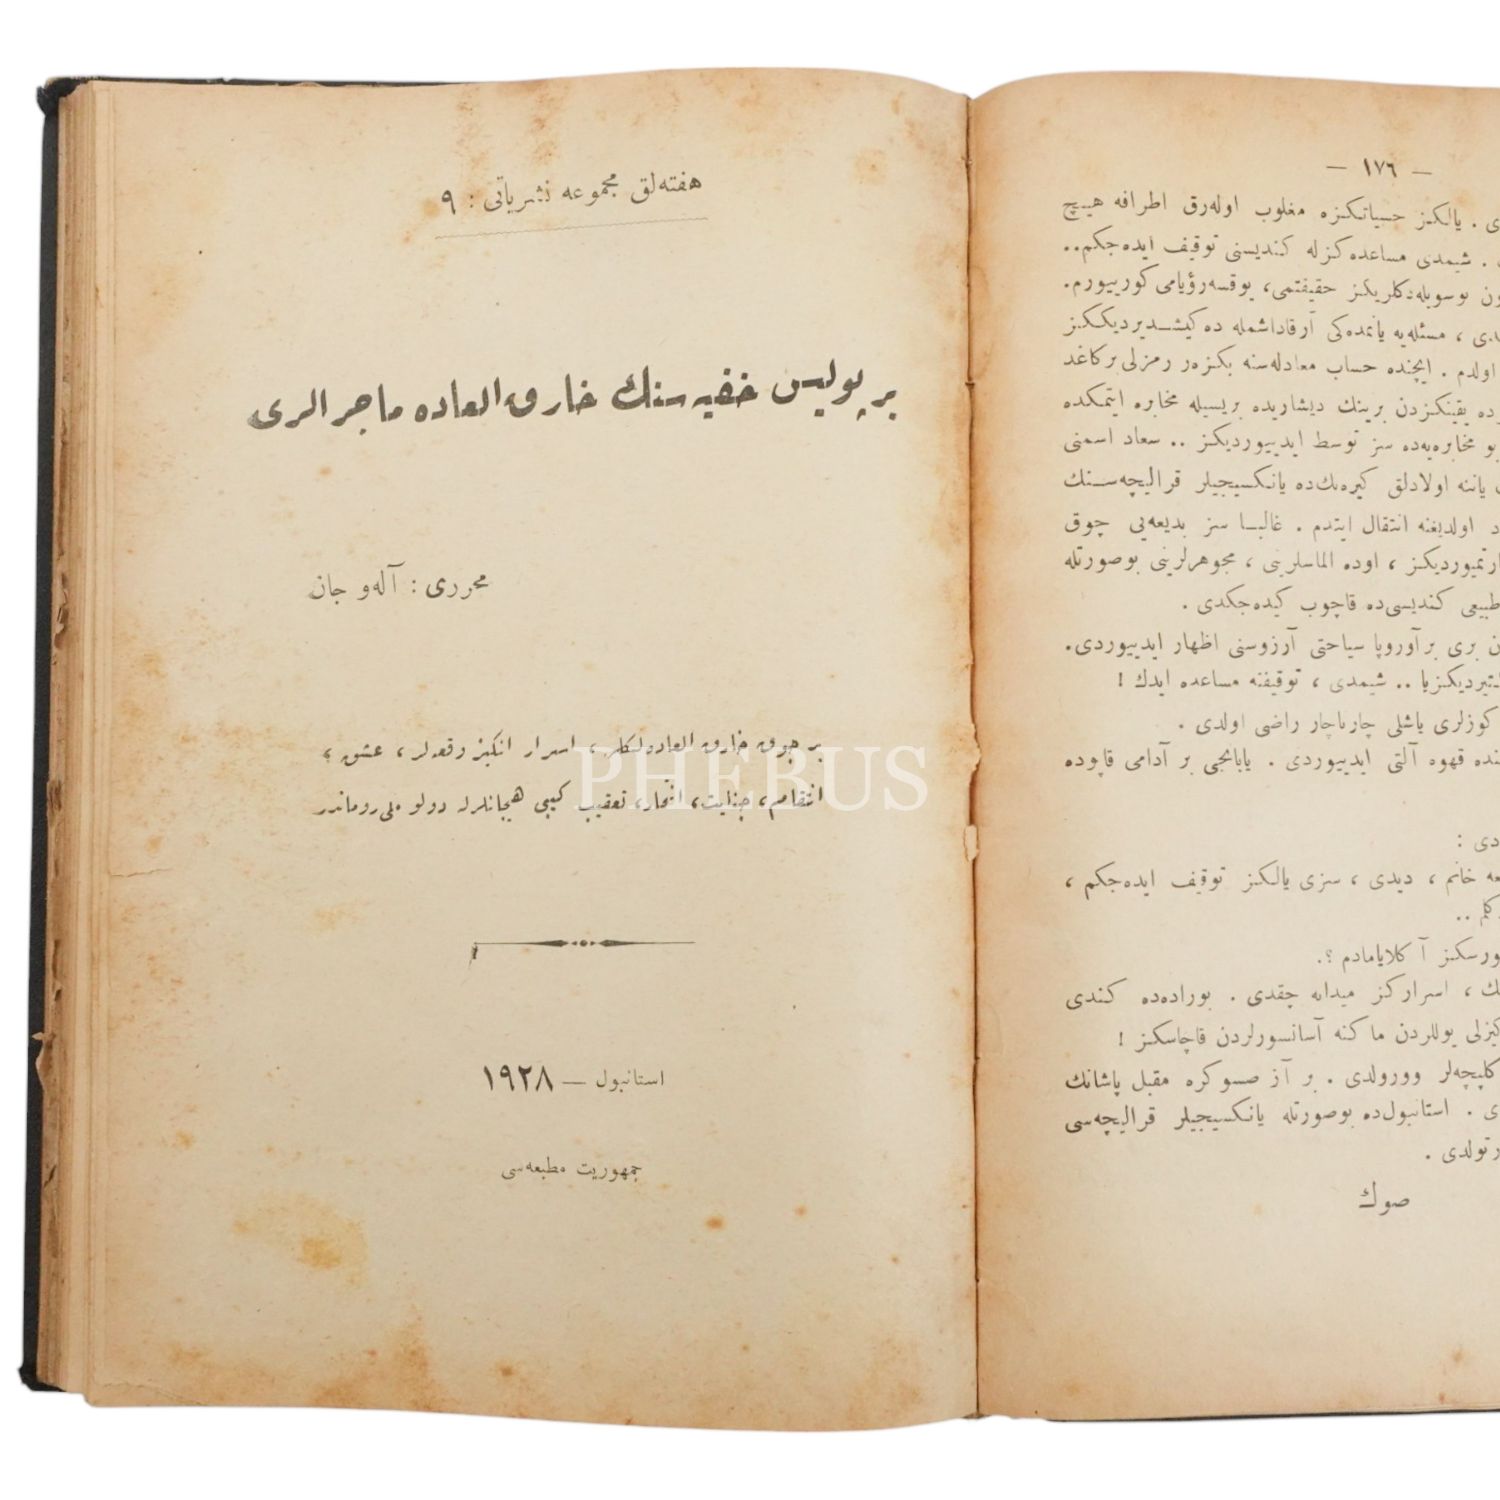 هفته‌لق مجموعه نشریاتی : ۹
بر پولیس خفیه سنك خارق العاده ماجرالری
محرری : آله‌و جان
بر چوق خارق العاده‌لكلر ، اسرار انكیز وقعه‌لر ، عشق ،
انتقام ، جنایت ، انتحار ، تعقیب كبی هیجانلرله دولو ملی روماندر
استانبول — ۱۹۲۸
جمهوریت مطبعه‌سی
PHEBUS
— ۱۷٦ —
ی . یالكز حسیاتكزه مغلوب اوله‌رق اطرافه هیچ
. شیمدی مساعده كزله كندیسنی توقیف ایده‌جكم..
ون بوسویله‌دكلریكز حقیقتمی، یوقسه رؤیامی كورییورم.
دی ، مسئله‌یه یانمده‌كی آرقاداشمله ده كیشدیردیككز
اولدم . ایچنده حساب معادله‌سنه بكزه‌ر رمزلی بر كاغد
ده یقینكزدن برینك دیشاریده بریسیله مخابره ایتمكده
بو مخابره‌یه‌ده سز توسط ایدییوردیكز .. سعاد اسمنی
یاننه اولادلق كیره‌نك‌ده یانكسیجیلر قرالیچه‌سنك
د اولدیغنه انتقال ایتدم . غالبا سز بدیعه‌یی چوق
ارتمیوردیكز ، اوده الماسلرینی ، مجوهرلرینی بوصورتله
طبیعی كندیسی‌ده قاچوب كیده‌جكدی .
ن بری بر آوروپا سیاحتی آرزوسنی اظهار ایدییوردی.
تیردیكزیا .. شیمدی ، توقیفنه مساعده ایدك !
كوزلری یاشلی چارناچار راضی اولدی .
نده قهوه آلتی ایدییوردی . یابانجی بر آدامی قاپوده
دی :
عه خانم ، دیدی ، سزی یالكز توقیف ایده‌جكم ،
كلم ..
ورسكز آ كلایامادم ؟.
ك ، اسراركز میدانه چقدی . بوراده‌ده كندی
كیزلی یوللردن ماكنه آسانسورلردن قاچاسكز !
كلپچه‌لر وورولدی . بر آز صوكره مقبل پاشانك
ی . استانبول‌ده بوصورتله یانكسیجیلر قرالیچه‌سی
رتولدی .
صوك